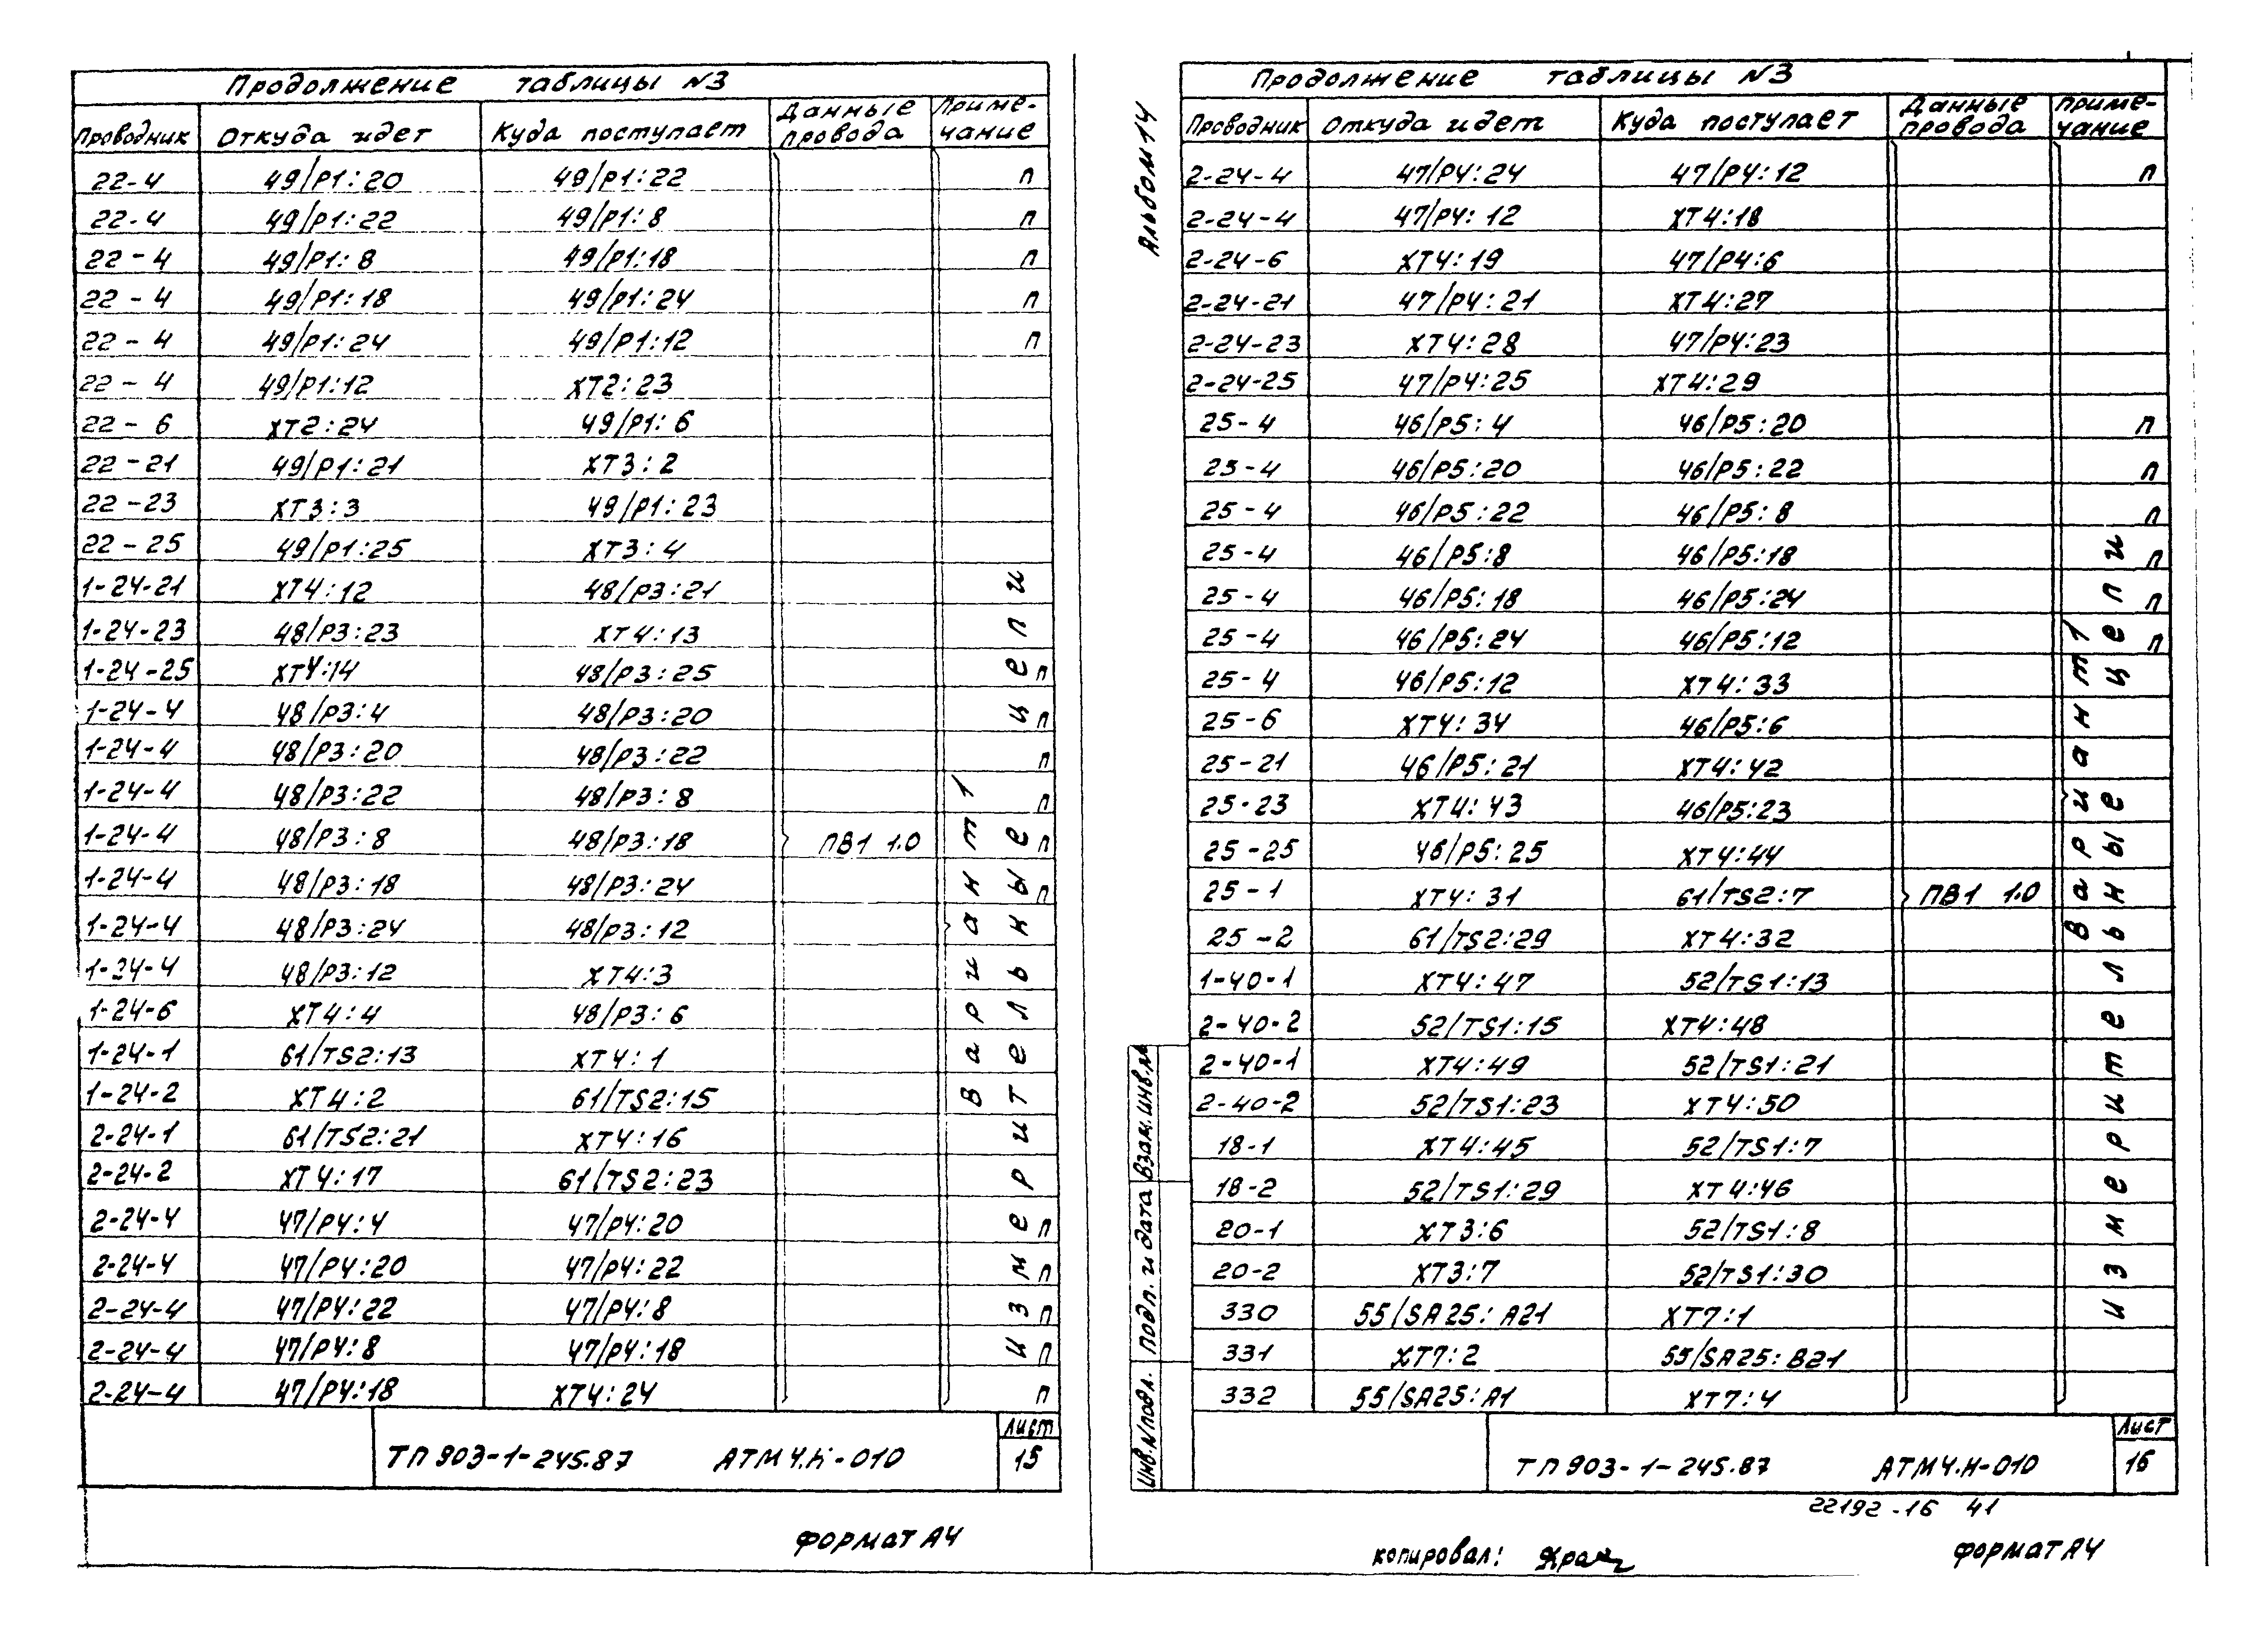 Продолжение таблицы N3
Проводник Откуда идет Куда поступает Данные провода Приме-чание
22-4 49/P1:20 49/P1:22 п
22-4 49/P1:22 49/P1:8 п
22-4 49/P1:8 49/P1:18 п
22-4 49/P1:18 49/P1:24 п
22-4 49/P1:24 49/P1:12 п
22-4 49/P1:12 XT2:23
22-6 XT2:24 49/P1:6
22-21 49/P1:21 XT3:2
22-23 XT3:3 49/P1:23
22-25 49/P1:25 XT3:4
1-24-21 XT4:12 48/P3:21
1-24-23 48/P3:23 XT4:13
1-24-25 XT4:14 48/P3:25 п
1-24-4 48/P3:4 48/P3:20 п
1-24-4 48/P3:20 48/P3:22 п
1-24-4 48/P3:22 48/P3:8 п
1-24-4 48/P3:8 48/P3:18 ПВ1 1.0 п
1-24-4 48/P3:18 48/P3:24 п
1-24-4 48/P3:24 48/P3:12
1-24-4 48/P3:12 XT4:3
1-24-6 XT4:4 48/P3:6
1-24-1 61/TS2:13 XT4:1
1-24-2 XT4:2 61/TS2:15
2-24-1 61/TS2:21 XT4:16
2-24-2 XT4:17 61/TS2:23
2-24-4 47/P4:4 47/P4:20 п
2-24-4 47/P4:20 47/P4:22 п
2-24-4 47/P4:22 47/P4:8 п
2-24-4 47/P4:8 47/P4:18 п
2-24-4 47/P4:18 XT4:24 п
Вариант 1
Измерительные цепи
ТП 903-1-245.87 АТМ4.Н-010 Лист 15
Формат А4
Альбом 14
Продолжение таблицы N3
Проводник Откуда идет Куда поступает Данные провода Приме-чание
2-24-4 47/P4:24 47/P4:12 п
2-24-4 47/P4:12 XT4:18
2-24-6 XT4:19 47/P4:6
2-24-21 47/P4:21 XT4:27
2-24-23 XT4:28 47/P4:23
2-24-25 47/P4:25 XT4:29
25-4 46/P5:4 46/P5:20 п
25-4 46/P5:20 46/P5:22 п
25-4 46/P5:22 46/P5:8 п
25-4 46/P5:8 46/P5:18 п
25-4 46/P5:18 46/P5:24 п
25-4 46/P5:24 46/P5:12 п
25-4 46/P5:12 XT4:33
25-6 XT4:34 46/P5:6
25-21 46/P5:21 XT4:42
25-23 XT4:43 46/P5:23
25-25 46/P5:25 XT4:44
25-1 XT4:31 61/TS2:7 ПВ1 1.0
25-2 61/TS2:29 XT4:32
1-40-1 XT4:47 52/TS1:13
2-40-2 52/TS1:15 XT4:48
2-40-1 XT4:49 52/TS1:21
2-40-2 52/TS1:23 XT4:50
18-1 XT4:45 52/TS1:7
18-2 52/TS1:29 XT4:46
20-1 XT3:6 52/TS1:8
20-2 XT3:7 52/TS1:30
330 55/SA25:A21 XT7:1
331 XT7:2 55/SA25:B21
332 55/SA25:A1 XT7:4
Вариант 1
Измерительные цепи
Инв.N подл. Подп. и дата Взам.инв.N
ТП 903-1-245.87 АТМ4.Н-010 Лист 16
22192-16 41
Копировал:
Формат А4